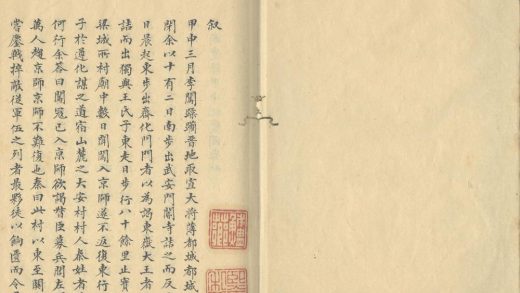 叙
甲申三月李闖蹂躪晉地取宣大將薄都城都城
閉余以十有二日南步出武安門闍寺詰之而反
日晨起東步出齊化門門者以為謁東嶽大王者
詰而出獨與王氏子東走日步行八十餘里止寶
梁城所村廟中數日聞闖入京師遂不返復東行
子於遵化謀之道宿山麓之大安村村人秦姓者
何行余答曰闖寇已入京師欲謁督臣募兵關左
萬人趨京師京師不難復也秦曰此村以東至關
嘗鏖戰捽敵從軍伍之列者最夥徒以餉匱而令